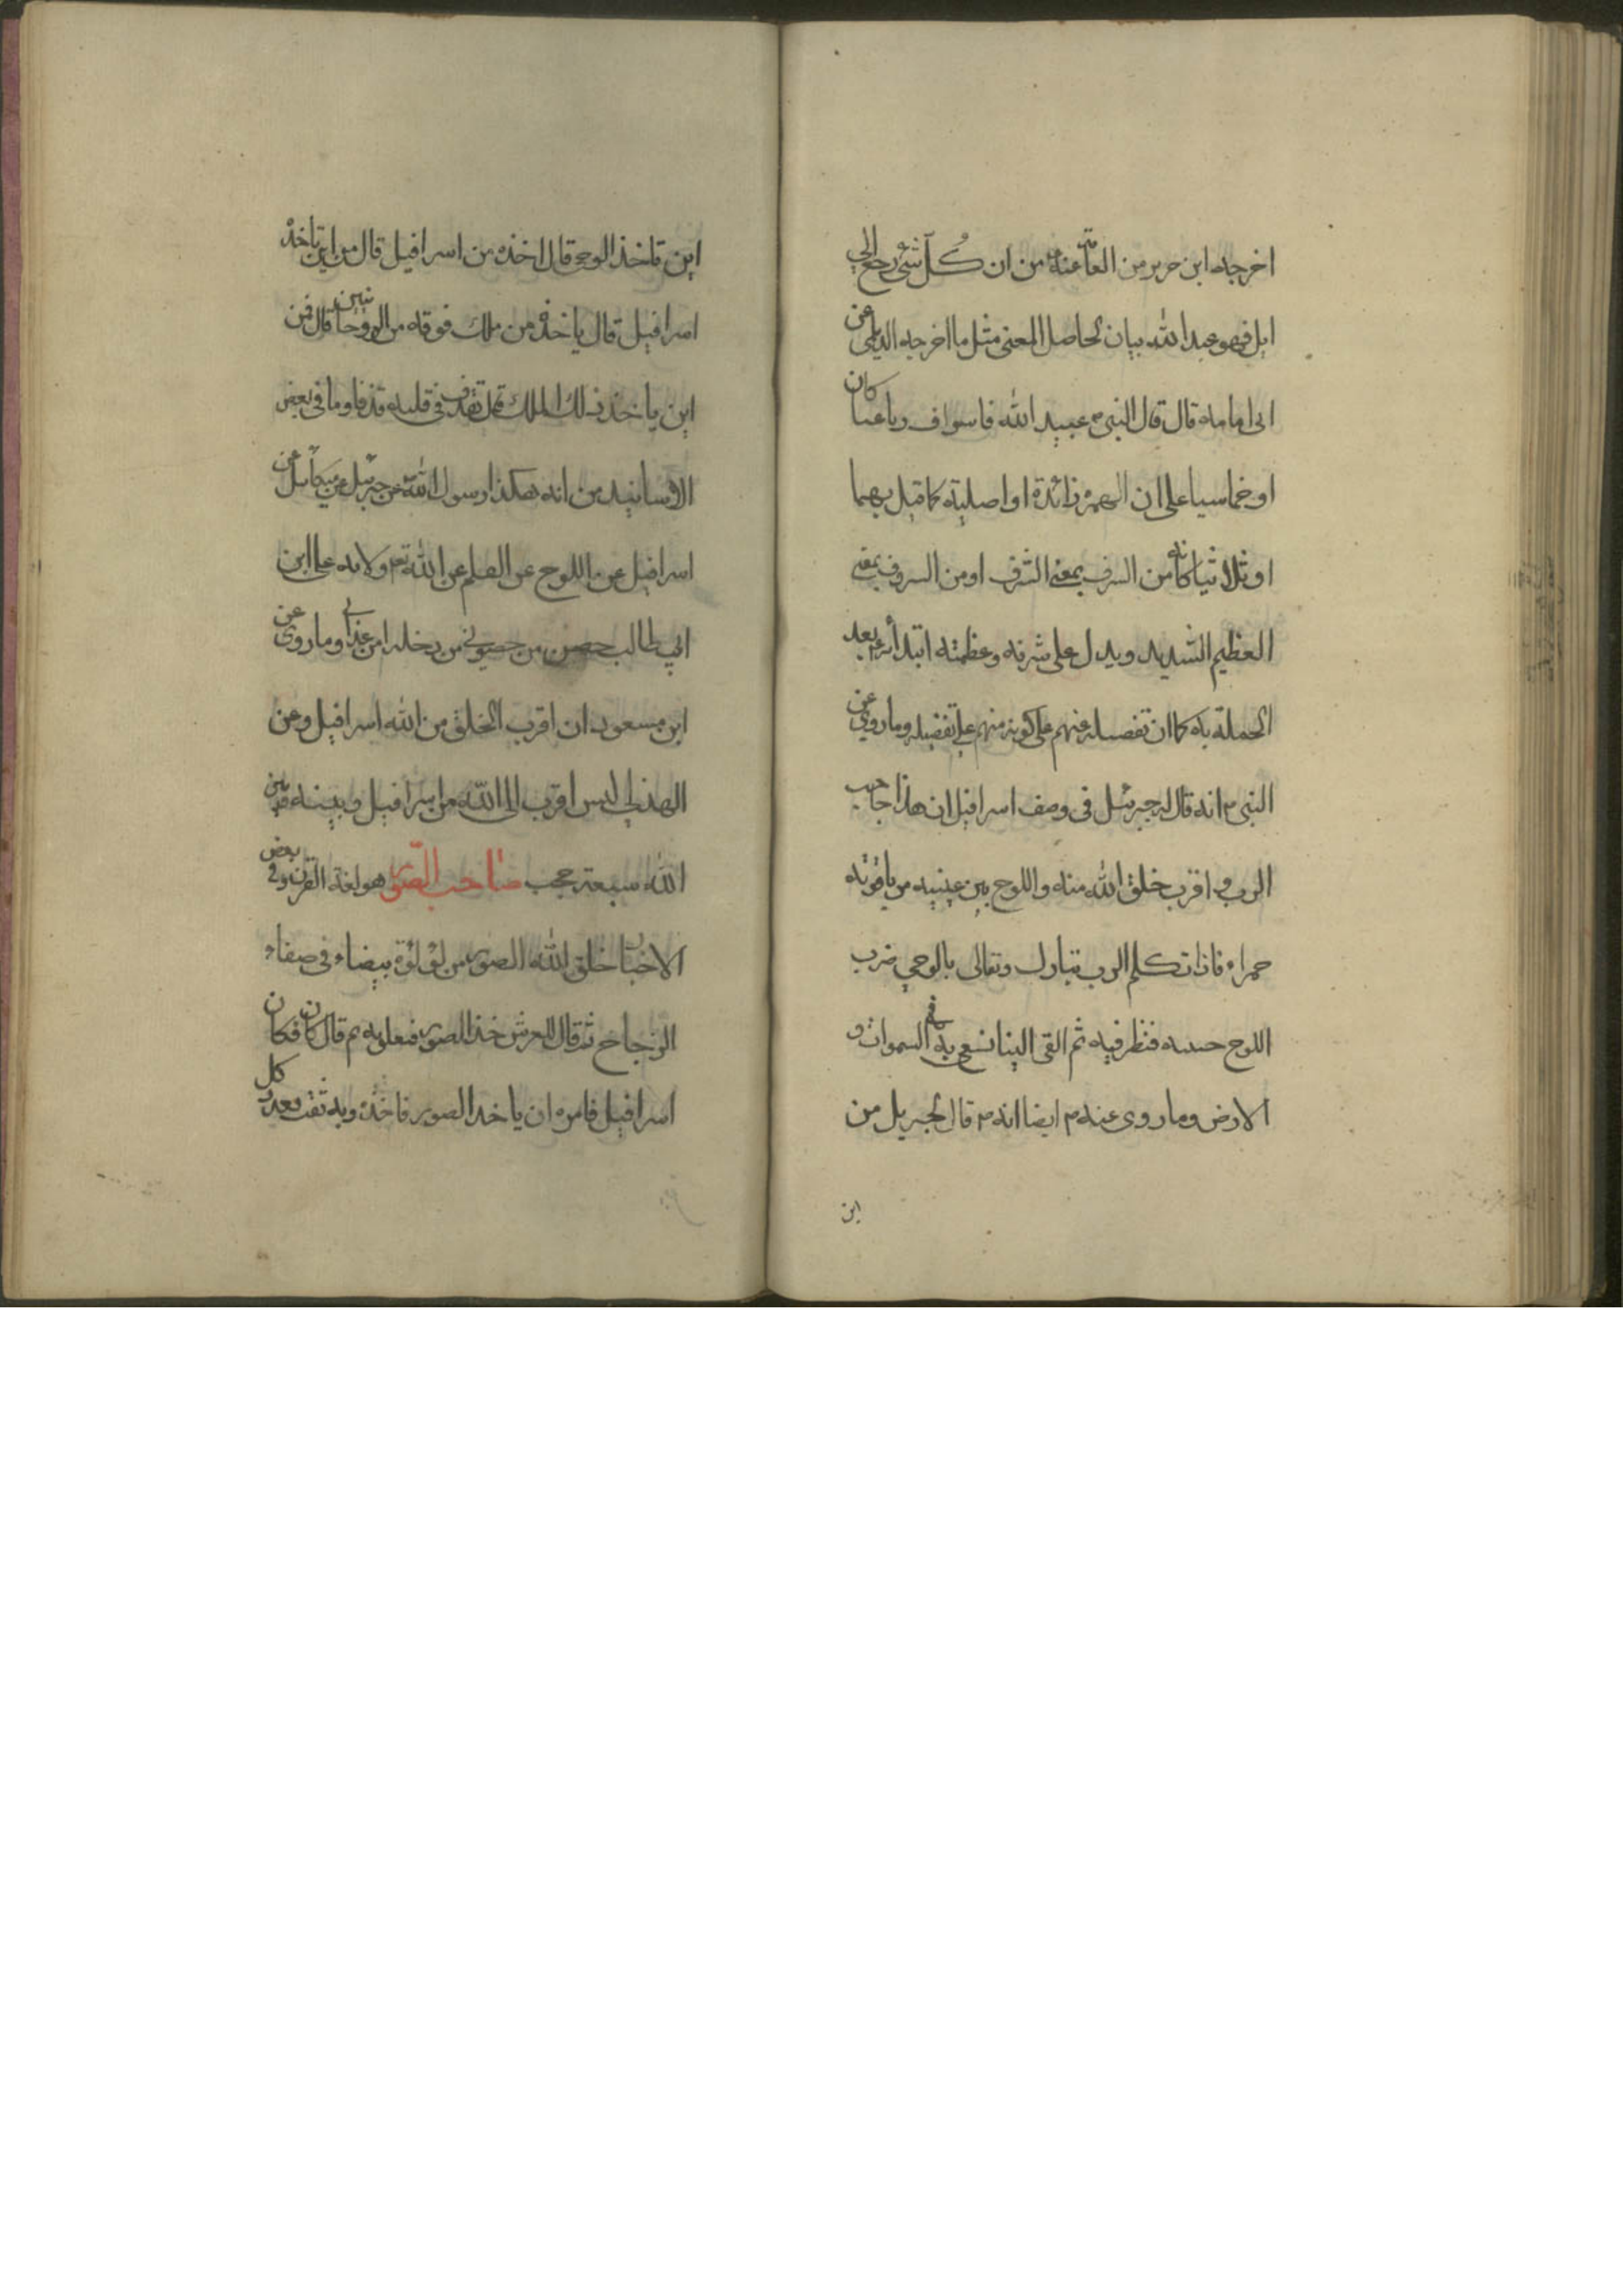 اخرجه ابن جرير من العامة عنه من ان كل شئ رجع الى
ايل فهو عبد الله بيان لحاصل المعنى مثل ما اخرجه الديلمى عن
ابى امامه قال قال النبى م عبيد الله فاسواف رباعيا كان
او خماسيا على ان الهمزه زائدة او اصلية كما قيل بهما
او ثلاثيا كانه من السرف بمعنى الشرف او من السروف بمعنى
العظيم الشديد ويدل على شرفه وعظمته ابتدائه بعد
الحملة به كما ان تفصله عنهم على كونه منهم على تفضيله وما روى عن
النبى م انه قال له جبرئيل فى وصف اسرافيل ان هذا حاجب
الرب و اقرب خلق الله منه واللوح بين عينيه من ياقوته
حمراء فاذا تكلم الرب تبارك وتعالى بالوحى ضرب
اللوح جبينه فنظر فيه ثم القى الينا نسعى به فى السموات و
الارض وما روى عنه م ايضا انه م قال لجبريل من
اين
اين تاخذ الوحى قال اخذه من اسرافيل قال من اين تاخذه
اسرافيل قال ياخذه من ملك فوقه من الروحانيين قال فمن
اين ياخذ ذلك الملك قال يقذف فى قلبه قذفا وما فى بعض
الاسانيد من انه هكذا رسول الله عن جبرئيل عن ميكائيل عن
اسرافيل عن اللوح عن القلم عن الله تع ولايه على ابن
ابى طالب حصنى من حصونى من دخله امن عذابى وما روى عن
ابن مسعود ان اقرب الخلق من الله اسرافيل وعن
الهذلى ليس اقرب الى الله من اسرافيل و بينه وبين
الله سبعة حجب صاحب الصور هو لغة القرن و فى بعض
الاخبار خلق الله الصور من لؤلؤة بيضاء فى صفاء
الزجاج ثم قال للعرش خذ الصور فتعلق به ثم قال كن فكان
اسرافيل فامره ان ياخذ الصور فاخذه وبه ثقب بعدد كل